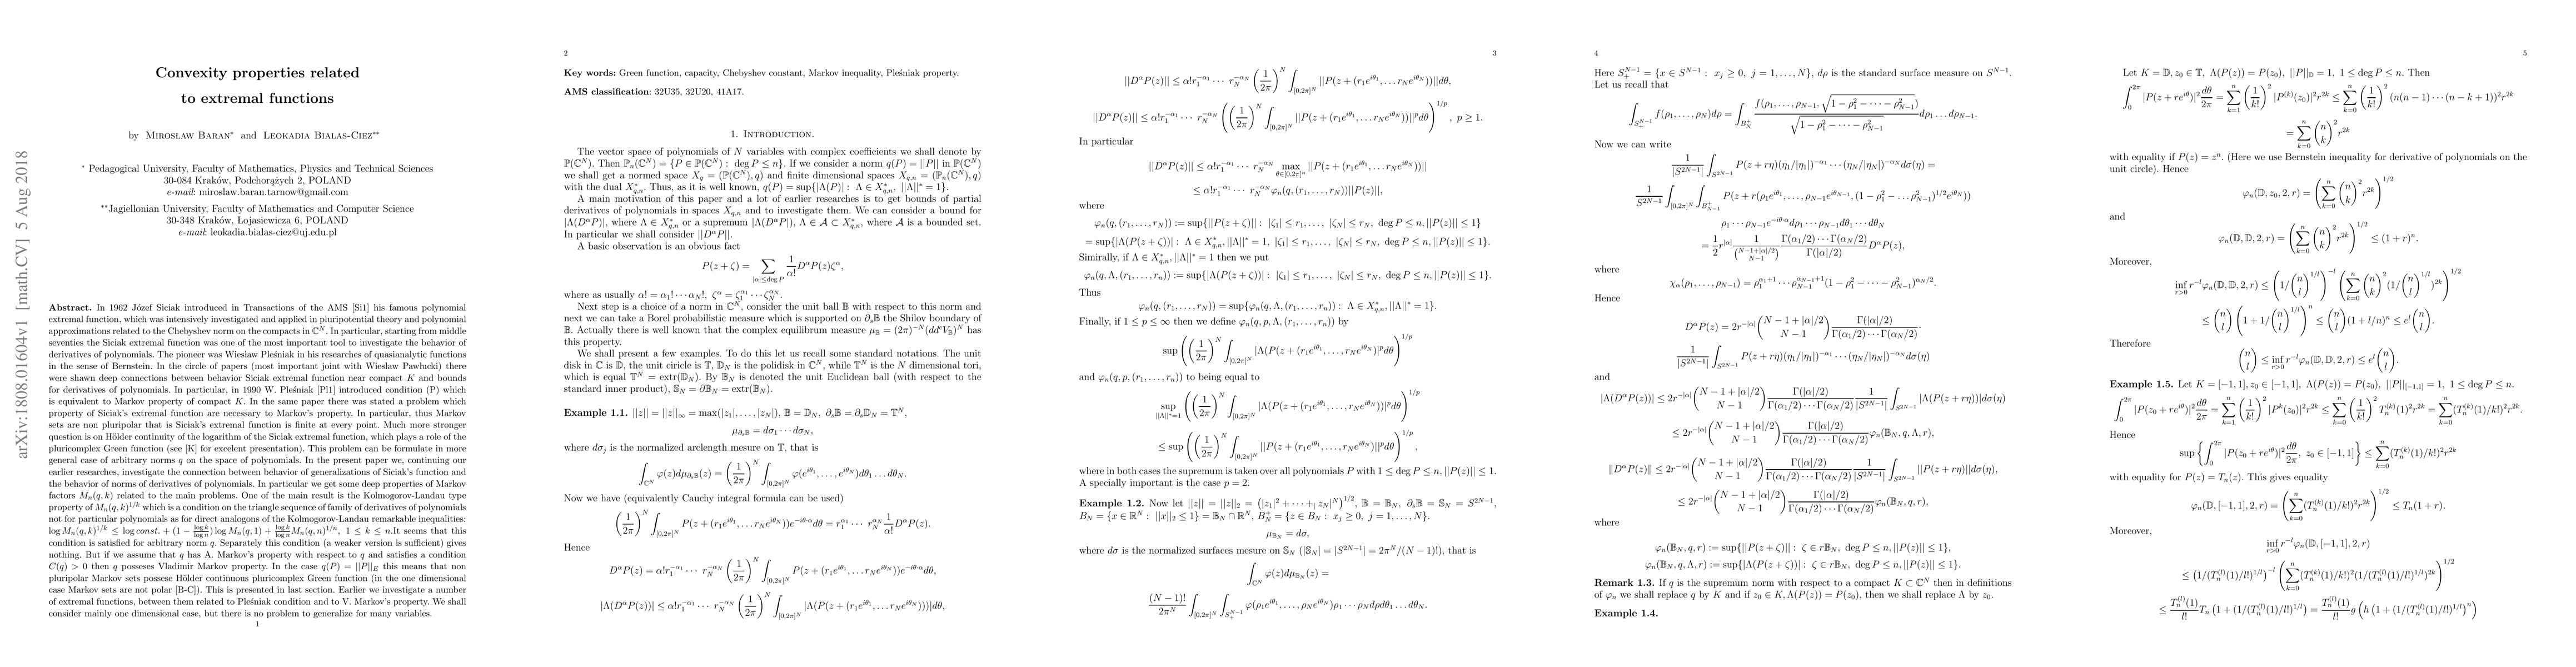 arXiv:1808.01604v1 [math.CV] 5 Aug 2018
Convexity properties related
to extremal functions
by Mirosław Baran* and Leokadia Bialas-Ciez**
* Pedagogical University, Faculty of Mathematics, Physics and Technical Sciences
30-084 Kraków, Podchorążych 2, POLAND
e-mail: miroslaw.baran.tarnow@gmail.com
**Jagiellonian University, Faculty of Mathematics and Computer Science
30-348 Kraków, Lojasiewicza 6, POLAND
e-mail: leokadia.bialas-ciez@uj.edu.pl
Abstract. In 1962 Józef Siciak introduced in Transactions of the AMS [Si1] his famous polynomial
extremal function, which was intensively investigated and applied in pluripotential theory and polynomial
approximations related to the Chebyshev norm on the compacts in ℂ^N. In particular, starting from middle
seventies the Siciak extremal function was one of the most important tool to investigate the behavior of
derivatives of polynomials. The pioneer was Wiesław Pleśniak in his researches of quasianalytic functions
in the sense of Bernstein. In the circle of papers (most important joint with Wiesław Pawłucki) there
were shawn deep connections between behavior Siciak extremal function near compact K and bounds
for derivatives of polynomials. In particular, in 1990 W. Pleśniak [Pl1] introduced condition (P) which
is equivalent to Markov property of compact K. In the same paper there was stated a problem which
property of Siciak's extremal function are necessary to Markov's property. In particular, thus Markov
sets are non pluripolar that is Siciak's extremal function is finite at every point. Much more stronger
question is on Hölder continuity of the logarithm of the Siciak extremal function, which plays a role of the
pluricomplex Green function (see [K] for excelent presentation). This problem can be formulate in more
general case of arbitrary norms q on the space of polynomials. In the present paper we, continuing our
earlier researches, investigate the connection between behavior of generalizations of Siciak's function and
the behavior of norms of derivatives of polynomials. In particular we get some deep properties of Markov
factors M_n(q, k) related to the main problems. One of the main result is the Kolmogorov-Landau type
property of M_n(q, k)^{1/k} which is a condition on the triangle sequence of family of derivatives of polynomials
not for particular polynomials as for direct analogous of the Kolmogorov-Landau remarkable inequalities:
log M_n(q, k)^{1/k} ≤ log const. + (1 − log k/log n) log M_n(q, 1) + log k/log n M_n(q, n)^{1/n}, 1 ≤ k ≤ n.It seems that this
condition is satisfied for arbitrary norm q. Separately this condition (a weaker version is sufficient) gives
nothing. But if we assume that q has A. Markov's property with respect to q and satisfies a condition
C(q) > 0 then q posseses Vladimir Markov property. In the case q(P) = ||P||_E this means that non
pluripolar Markov sets possese Hölder continuous pluricomplex Green function (in the one dimensional
case Markov sets are not polar [B-C]). This is presented in last section. Earlier we investigate a number
of extremal functions, between them related to Pleśniak condition and to V. Markov's property. We shall
consider mainly one dimensional case, but there is no problem to generalize for many variables.
1
2
Key words: Green function, capacity, Chebyshev constant, Markov inequality, Pleśniak property.
AMS classification: 32U35, 32U20, 41A17.
1. Introduction.
The vector space of polynomials of N variables with complex coefficients we shall denote by
ℙ(ℂ^N). Then ℙ_n(ℂ^N) = {P ∈ ℙ(ℂ^N) : deg P ≤ n}. If we consider a norm q(P) = ||P|| in ℙ(ℂ^N)
we shall get a normed space X_q = (ℙ(ℂ^N), q) and finite dimensional spaces X_{q,n} = (ℙ_n(ℂ^N), q)
with the dual X*_{q,n}. Thus, as it is well known, q(P) = sup{|Λ(P)| : Λ ∈ X*_{q,n}, ||Λ||* = 1}.
A main motivation of this paper and a lot of earlier researches is to get bounds of partial
derivatives of polynomials in spaces X_{q,n} and to investigate them. We can consider a bound for
|Λ(D^αP)|, where Λ ∈ X*_{q,n} or a supremum |Λ(D^αP)|, Λ ∈ 𝒜 ⊂ X*_{q,n}, where 𝒜 is a bounded set.
In particular we shall consider ||D^αP||.
A basic observation is an obvious fact
P(z + ζ) = ∑_{|α|≤deg P} 1/α! D^αP(z)ζ^α,
where as usually α! = α_1! ··· α_N!, ζ^α = ζ_1^{α_1} ··· ζ_N^{α_N}.
Next step is a choice of a norm in ℂ^N, consider the unit ball 𝔹 with respect to this norm and
next we can take a Borel probabilistic measure which is supported on ∂_s𝔹 the Shilov boundary of
𝔹. Actually there is well known that the complex equilibrum measure μ_𝔹 = (2π)^{−N}(dd^cV_𝔹)^N has
this property.
We shall present a few examples. To do this let us recall some standard notations. The unit
disk in ℂ is 𝔻, the unit circle is 𝕋, 𝔻_N is the polidisk in ℂ^N, while 𝕋^N is the N dimensional tori,
which is equal 𝕋^N = extr(𝔻_N). By 𝔹_N is denoted the unit Euclidean ball (with respect to the
standard inner product), 𝕊_N = ∂𝔹_N = extr(𝔹_N).
Example 1.1. ||z|| = ||z||_∞ = max(|z_1|, . . . , |z_N|), 𝔹 = 𝔻_N, ∂_s𝔹 = ∂_s𝔻_N = 𝕋^N,
μ_{∂_s𝔹} = dσ_1 ··· dσ_N,
where dσ_j is the normalized arclength mesure on 𝕋, that is
∫_{ℂ^N} φ(z)dμ_{∂_s𝔹}(z) = (1/2π)^N ∫_{[0,2π]^N} φ(e^{iθ_1}, . . . , e^{iθ_N})dθ_1 . . . dθ_N.
Now we have (equivalently Cauchy integral formula can be used)
(1/2π)^N ∫_{[0,2π]^N} P(z + (r_1e^{iθ_1}, . . . r_Ne^{iθ_N}))e^{−iθ·α}dθ = r_1^{α_1} ··· r_N^{α_N} 1/α! D^αP(z).
Hence
D^αP(z) = α!r_1^{−α_1} ··· r_N^{−α_N} (1/2π)^N ∫_{[0,2π]^N} P(z + (r_1e^{iθ_1}, . . . r_Ne^{iθ_N}))e^{−iθ·α}dθ,
|Λ(D^αP(z)| ≤ α!r_1^{−α_1} ··· r_N^{−α_N} (1/2π)^N ∫_{[0,2π]^N} |Λ(P(z + (r_1e^{iθ_1}, . . . r_Ne^{iθ_N})))|dθ,
3
||D^αP(z)|| ≤ α!r_1^{−α_1} ··· r_N^{−α_N} (1/2π)^N ∫_{[0,2π]^N} ||P(z + (r_1e^{iθ_1}, . . . r_Ne^{iθ_N}))||dθ,
||D^αP(z)|| ≤ α!r_1^{−α_1} ··· r_N^{−α_N} ((1/2π)^N ∫_{[0,2π]^N} ||P(z + (r_1e^{iθ_1}, . . . r_Ne^{iθ_N}))||^pdθ)^{1/p}, p ≥ 1.
In particular
||D^αP(z)|| ≤ α!r_1^{−α_1} ··· r_N^{−α_N} max_{θ∈[0,2π]^n} ||P(z + (r_1e^{iθ_1}, . . . r_Ne^{iθ_N}))||
≤ α!r_1^{−α_1} ··· r_N^{−α_N} φ_n(q, (r_1, . . . , r_N))||P(z)||,
where
φ_n(q, (r_1, . . . , r_N)) := sup{||P(z + ζ)|| : |ζ_1| ≤ r_1, . . . , |ζ_N| ≤ r_N, deg P ≤ n, ||P(z)|| ≤ 1}
= sup{|Λ(P(z + ζ))| : Λ ∈ X*_{q,n}, ||Λ||* = 1, |ζ_1| ≤ r_1, . . . , |ζ_N| ≤ r_N, deg P ≤ n, ||P(z)|| ≤ 1}.
Simirally, if Λ ∈ X*_{q,n}, ||Λ||* = 1 then we put
φ_n(q, Λ, (r_1, . . . , r_n)) := sup{|Λ(P(z + ζ))| : |ζ_1| ≤ r_1, . . . , |ζ_N| ≤ r_N, deg P ≤ n, ||P(z)|| ≤ 1}.
Thus
φ_n(q, (r_1, . . . , r_N)) = sup{φ_n(q, Λ, (r_1, . . . , r_n)) : Λ ∈ X*_{q,n}, ||Λ||* = 1}.
Finally, if 1 ≤ p ≤ ∞ then we define φ_n(q, p, Λ, (r_1, . . . , r_N)) by
sup ((1/2π)^N ∫_{[0,2π]^N} |Λ(P(z + (r_1e^{iθ_1}, . . . , r_Ne^{iθ_N})|^pdθ)^{1/p}
and φ_n(q, p, (r_1, . . . , r_N)) to being equal to
sup_{||Λ||*=1} ((1/2π)^N ∫_{[0,2π]^N} |Λ(P(z + (r_1e^{iθ_1}, . . . , r_Ne^{iθ_N}))|^pdθ)^{1/p}
≤ sup ((1/2π)^N ∫_{[0,2π]^N} ||P(z + (r_1e^{iθ_1}, . . . , r_Ne^{iθ_N})||^pdθ)^{1/p},
where in both cases the supremum is taken over all polynomials P with 1 ≤ deg P ≤ n, ||P(z)|| ≤ 1.
A specially important is the case p = 2.
Example 1.2. Now let ||z|| = ||z||_2 = (|z_1|^2 + ··· + |z_N|^N)^{1/2}, 𝔹 = 𝔹_N, ∂_s𝔹 = 𝕊_N = S^{2N−1},
B_N = {x ∈ ℝ^N : ||x||_2 ≤ 1} = 𝔹_N ∩ ℝ^N, B_N^+ = {z ∈ B_N : x_j ≥ 0, j = 1, . . . , N}.
μ_{𝔹_N} = dσ,
where dσ is the normalized surfaces mesure on 𝕊_N (|𝕊_N| = |S^{2N−1}| = 2π^N/(N − 1)!), that is
∫_{ℂ^N} φ(z)dμ_{𝔹_N}(z) =
(N − 1)!/2π^N ∫_{[0,2π]^N} ∫_{S_+^{N−1}} φ(ρ_1e^{iθ_1}, . . . , ρ_Ne^{iθ_N})ρ_1 ··· ρ_Ndρdθ_1 . . . dθ_N.
4
Here S_+^{N−1} = {x ∈ S^{N−1} : x_j ≥ 0, j = 1, . . . , N}, dρ is the standard surface measure on S^{N−1}.
Let us recall that
∫_{S_+^{N−1}} f(ρ_1, . . . , ρ_N)dρ = ∫_{B_N^+} f(ρ_1, . . . , ρ_{N−1}, √(1 − ρ_1^2 − ··· − ρ_{N−1}^2))/√(1 − ρ_1^2 − ··· − ρ_{N−1}^2) dρ_1 . . . dρ_{N−1}.
Now we can write
1/|S^{2N−1}| ∫_{S^{2N−1}} P(z + rη)(η_1/|η_1|)^{−α_1} ··· (η_N/|η_N|)^{−α_N}dσ(η) =
1/S^{2N−1} ∫_{[0,2π]^N} ∫_{B_{N−1}^+} P(z + r(ρ_1e^{iθ_1}, . . . , ρ_{N−1}e^{iθ_{N−1}}, (1 − ρ_1^2 − . . . ρ_{N−1}^2)^{1/2}e^{iθ_N}))
ρ_1 ··· ρ_{N−1}e^{−iθ·α}dρ_1 ··· dρ_{N−1}dθ_1 ··· dθ_N
= 1/2 r^{|α|} 1/(N−1+|α|/2 choose N−1) Γ(α_1/2) ··· Γ(α_N/2)/Γ(|α|/2) D^αP(z),
where
χ_α(ρ_1, . . . , ρ_{N−1}) = ρ_1^{α_1+1} ··· ρ_{N−1}^{α_{N−1}+1}(1 − ρ_1^2 − ··· − ρ_{N−1}^2)^{α_N/2}.
Hence
D^αP(z) = 2r^{−|α|} (N − 1 + |α|/2 choose N − 1) Γ(|α|/2)/Γ(α_1/2) ··· Γ(α_N/2) ·
1/|S^{2N−1}| ∫_{S^{2N−1}} P(z + rη)(η_1/|η_1|)^{−α_1} ··· (η_N/|η_N|)^{−α_N}dσ(η)
and
|Λ(D^αP(z))| ≤ 2r^{−|α|} (N − 1 + |α|/2 choose N − 1) Γ(|α|/2)/Γ(α_1/2) ··· Γ(α_N/2) 1/|S^{2N−1}| ∫_{S^{2N−1}} |Λ(P(z + rη))|dσ(η)
≤ 2r^{−|α|} (N − 1 + |α|/2 choose N − 1) Γ(|α|/2)/Γ(α_1/2) ··· Γ(α_N/2) φ_n(𝔹_N, q, Λ, r),
||D^αP(z)|| ≤ 2r^{−|α|} (N − 1 + |α|/2 choose N − 1) Γ(|α|/2)/Γ(α_1/2) ··· Γ(α_N/2) 1/|S^{2N−1}| ∫_{S^{2N−1}} ||P(z + rη)||dσ(η),
≤ 2r^{−|α|} (N − 1 + |α|/2 choose N − 1) Γ(|α|/2)/Γ(α_1/2) ··· Γ(α_N/2) φ_n(𝔹_N, q, r),
where
φ_n(𝔹_N, q, r) := sup{||P(z + ζ)|| : ζ ∈ r𝔹_N, deg P ≤ n, ||P(z)|| ≤ 1},
φ_n(𝔹_N, q, Λ, r) := sup{|Λ(P(z + ζ))| : ζ ∈ r𝔹_N, deg P ≤ n, ||P(z)|| ≤ 1}.
Remark 1.3. If q is the supremum norm with respect to a compact K ⊂ ℂ^N then in definitions
of φ_n we shall replace q by K and if z_0 ∈ K, Λ(P(z)) = P(z_0), then we shall replace Λ by z_0.
Example 1.4.
5
Let K = 𝔻, z_0 ∈ 𝕋, Λ(P(z)) = P(z_0), ||P||_𝔻 = 1, 1 ≤ deg P ≤ n. Then
∫_0^{2π} |P(z + re^{iθ})|^2 dθ/2π = ∑_{k=1}^n (1/k!)^2 |P^{(k)}(z_0)|^2r^{2k} ≤ ∑_{k=0}^n (1/k!)^2 (n(n − 1) ··· (n − k + 1))^2r^{2k}
= ∑_{k=0}^n (n choose k)^2 r^{2k}
with equality if P(z) = z^n. (Here we use Bernstein inequality for derivative of polynomials on the
unit circle). Hence
φ_n(𝔻, z_0, 2, r) = (∑_{k=0}^n (n choose k)^2 r^{2k})^{1/2}
and
φ_n(𝔻, 𝔻, 2, r) = (∑_{k=0}^n (n choose k)^2 r^{2k})^{1/2} ≤ (1 + r)^n.
Moreover,
inf_{r>0} r^{−l}φ_n(𝔻, 𝔻, 2, r) ≤ (1/(n choose l)^{1/l})^{−l} (∑_{k=0}^n (n choose k)^2 (1/(n choose l)^{1/l})^{2k})^{1/2}
≤ (n choose l) (1 + 1/(n choose l)^{1/l})^n ≤ (n choose l)(1 + l/n)^n ≤ e^l (n choose l).
Therefore
(n choose l) ≤ inf_{r>0} r^{−l}φ_n(𝔻, 𝔻, 2, r) ≤ e^l (n choose l).
Example 1.5. Let K = [−1, 1], z_0 ∈ [−1, 1], Λ(P(z)) = P(z_0), ||P||_{[−1,1]} = 1, 1 ≤ deg P ≤ n.
∫_0^{2π} |P(z_0 + re^{iθ})|^2 dθ/2π = ∑_{k=1}^n (1/k!)^2 |P^k(z_0)|^2r^{2k} ≤ ∑_{k=0}^n (1/k!)^2 T_n^{(k)}(1)^2r^{2k} = ∑_{k=0}^n (T_n^{(k)}(1)/k!)^2r^{2k}.
Hence
sup {∫_0^{2π} |P(z_0 + re^{iθ})|^2 dθ/2π, z_0 ∈ [−1, 1]} ≤ ∑_{k=0}^n (T_n^{(k)}(1)/k!)^2r^{2k}
with equality for P(z) = T_n(z). This gives equality
φ_n(𝔻, [−1, 1], 2, r) = (∑_{k=0}^n (T_n^{(k)}(1)/k!)^2r^{2k})^{1/2} ≤ T_n(1 + r).
Moreover,
inf_{r>0} r^{−l}φ_n(𝔻, [−1, 1], 2, r)
≤ (1/(T_n^{(l)}(1)/l!)^{1/l})^{−l} (∑_{k=0}^n (T_n^{(k)}(1)/k!)^2(1/(T_n^{(l)}(1)/l!)^{1/l})^{2k})^{1/2}
≤ T_n^{(l)}(1)/l! T_n (1 + (1/(T_n^{(l)}(1)/l!)^{1/l}) = T_n^{(l)}(1)/l! g (h (1 + (1/(T_n^{(l)}(1)/l!)^{1/l})^n)